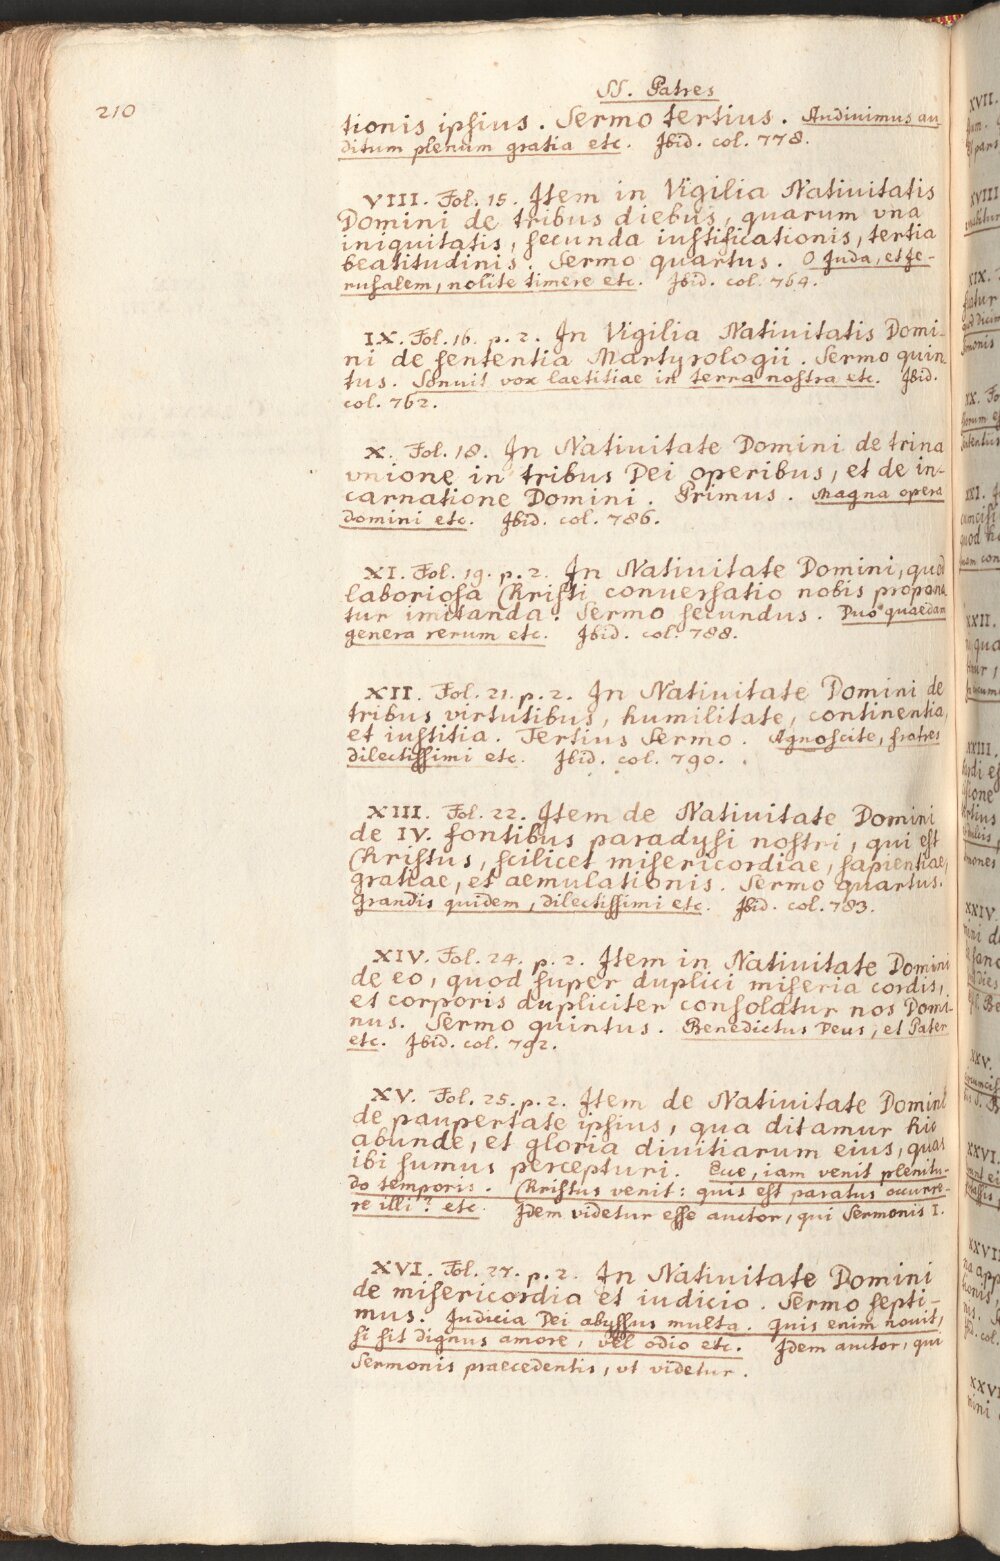 210
SS. Patres
tionis ipsius. Sermo tertius. Audivimus au
ditum plenum gratia etc. Ibid. col. 778.
VIII. Fol. 15. Item in Vigilia Natiuitatis
Domini de tribus diebus, quarum vna
iniquitatis, secunda iustificationis, tertia
beatitudinis. Sermo quartus. O Iuda, et Je-
rusalem, nolite timere etc. Ibid. col. 764.
IX. Fol. 16. p. 2. In Vigilia Natiuitatis Domi-
ni de sententia Martyrologii. Sermo quin
tus. Sonuit vox laetitiae in terra nostra etc. Ibid.
col. 762.
X. Fol. 18. In Natiuitate Domini de trina
vnione in tribus Dei operibus, et de in-
carnatione Domini. Primus. Magna opera
domini etc. Ibid. col. 786.
XI. Fol. 19. p. 2. In Natiuitate Domini, quod
laboriosa Christi conuersatio nobis propona
tur imitanda. Sermo secundus. Duo quaedam
genera rerum etc. Ibid. col. 788.
XII. Fol. 21. p. 2. In Natiuitate Domini de
tribus virtutibus, humilitate, continentia,
et iustitia. Tertius Sermo. Agnoscite, fratres
dilectissimi etc. Ibid. col. 790.
XIII. Fol. 22. Item de Natiuitate Domini
de IV. fontibus paradysi nostri, qui est
Christus, scilicet misericordiae, sapientiae,
gratiae, et aemulationis. Sermo quartus.
Grandis quidem, dilectissimi etc. Ibid. col. 783.
XIV. Fol. 24. p. 2. Item in Natiuitate Domini
de eo, quod super duplici miseria cordis,
et corporis dupliciter consolatur nos Domi-
nus. Sermo quintus. Benedictus Deus, et Pater
etc. Ibid. col. 792.
XV. Fol. 25. p. 2. Item de Natiuitate Domini
de paupertate ipsius, qua ditamur hic
abunde, et gloria diuitiarum eius, quas
ibi sumus percepturi. Ecce, iam venit plenitu-
do temporis. Christus venit: quis est paratus occurre-
re illi? etc. Idem videtur esse auctor, qui Sermonis I.
XVI. Fol. 27. p. 2. In Natiuitate Domini
de misericordia et iudicio. Sermo septi-
mus. Iudicia Dei abyssus multa. Quis enim nouit,
si sit dignus amore, vel odio etc. Idem auctor, qui
Sermonis praecedentis, vt videtur.